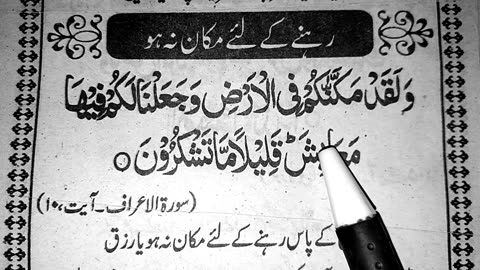 رہنے کے لئے مکان نہ ہو
وَلَقَدْ مَكَّنّٰكُمْ فِى الْاَرْضِ وَجَعَلْنَا لَكُمْ فِيْهَا
مَعَايِشَ ؕ قَلِيْلًا مَّا تَشْكُرُوْنَ ○
(سورۃ الاعراف۔آیت،۱۰)
کے پاس رہنے کے لئے مکان نہ ہو یا رزق